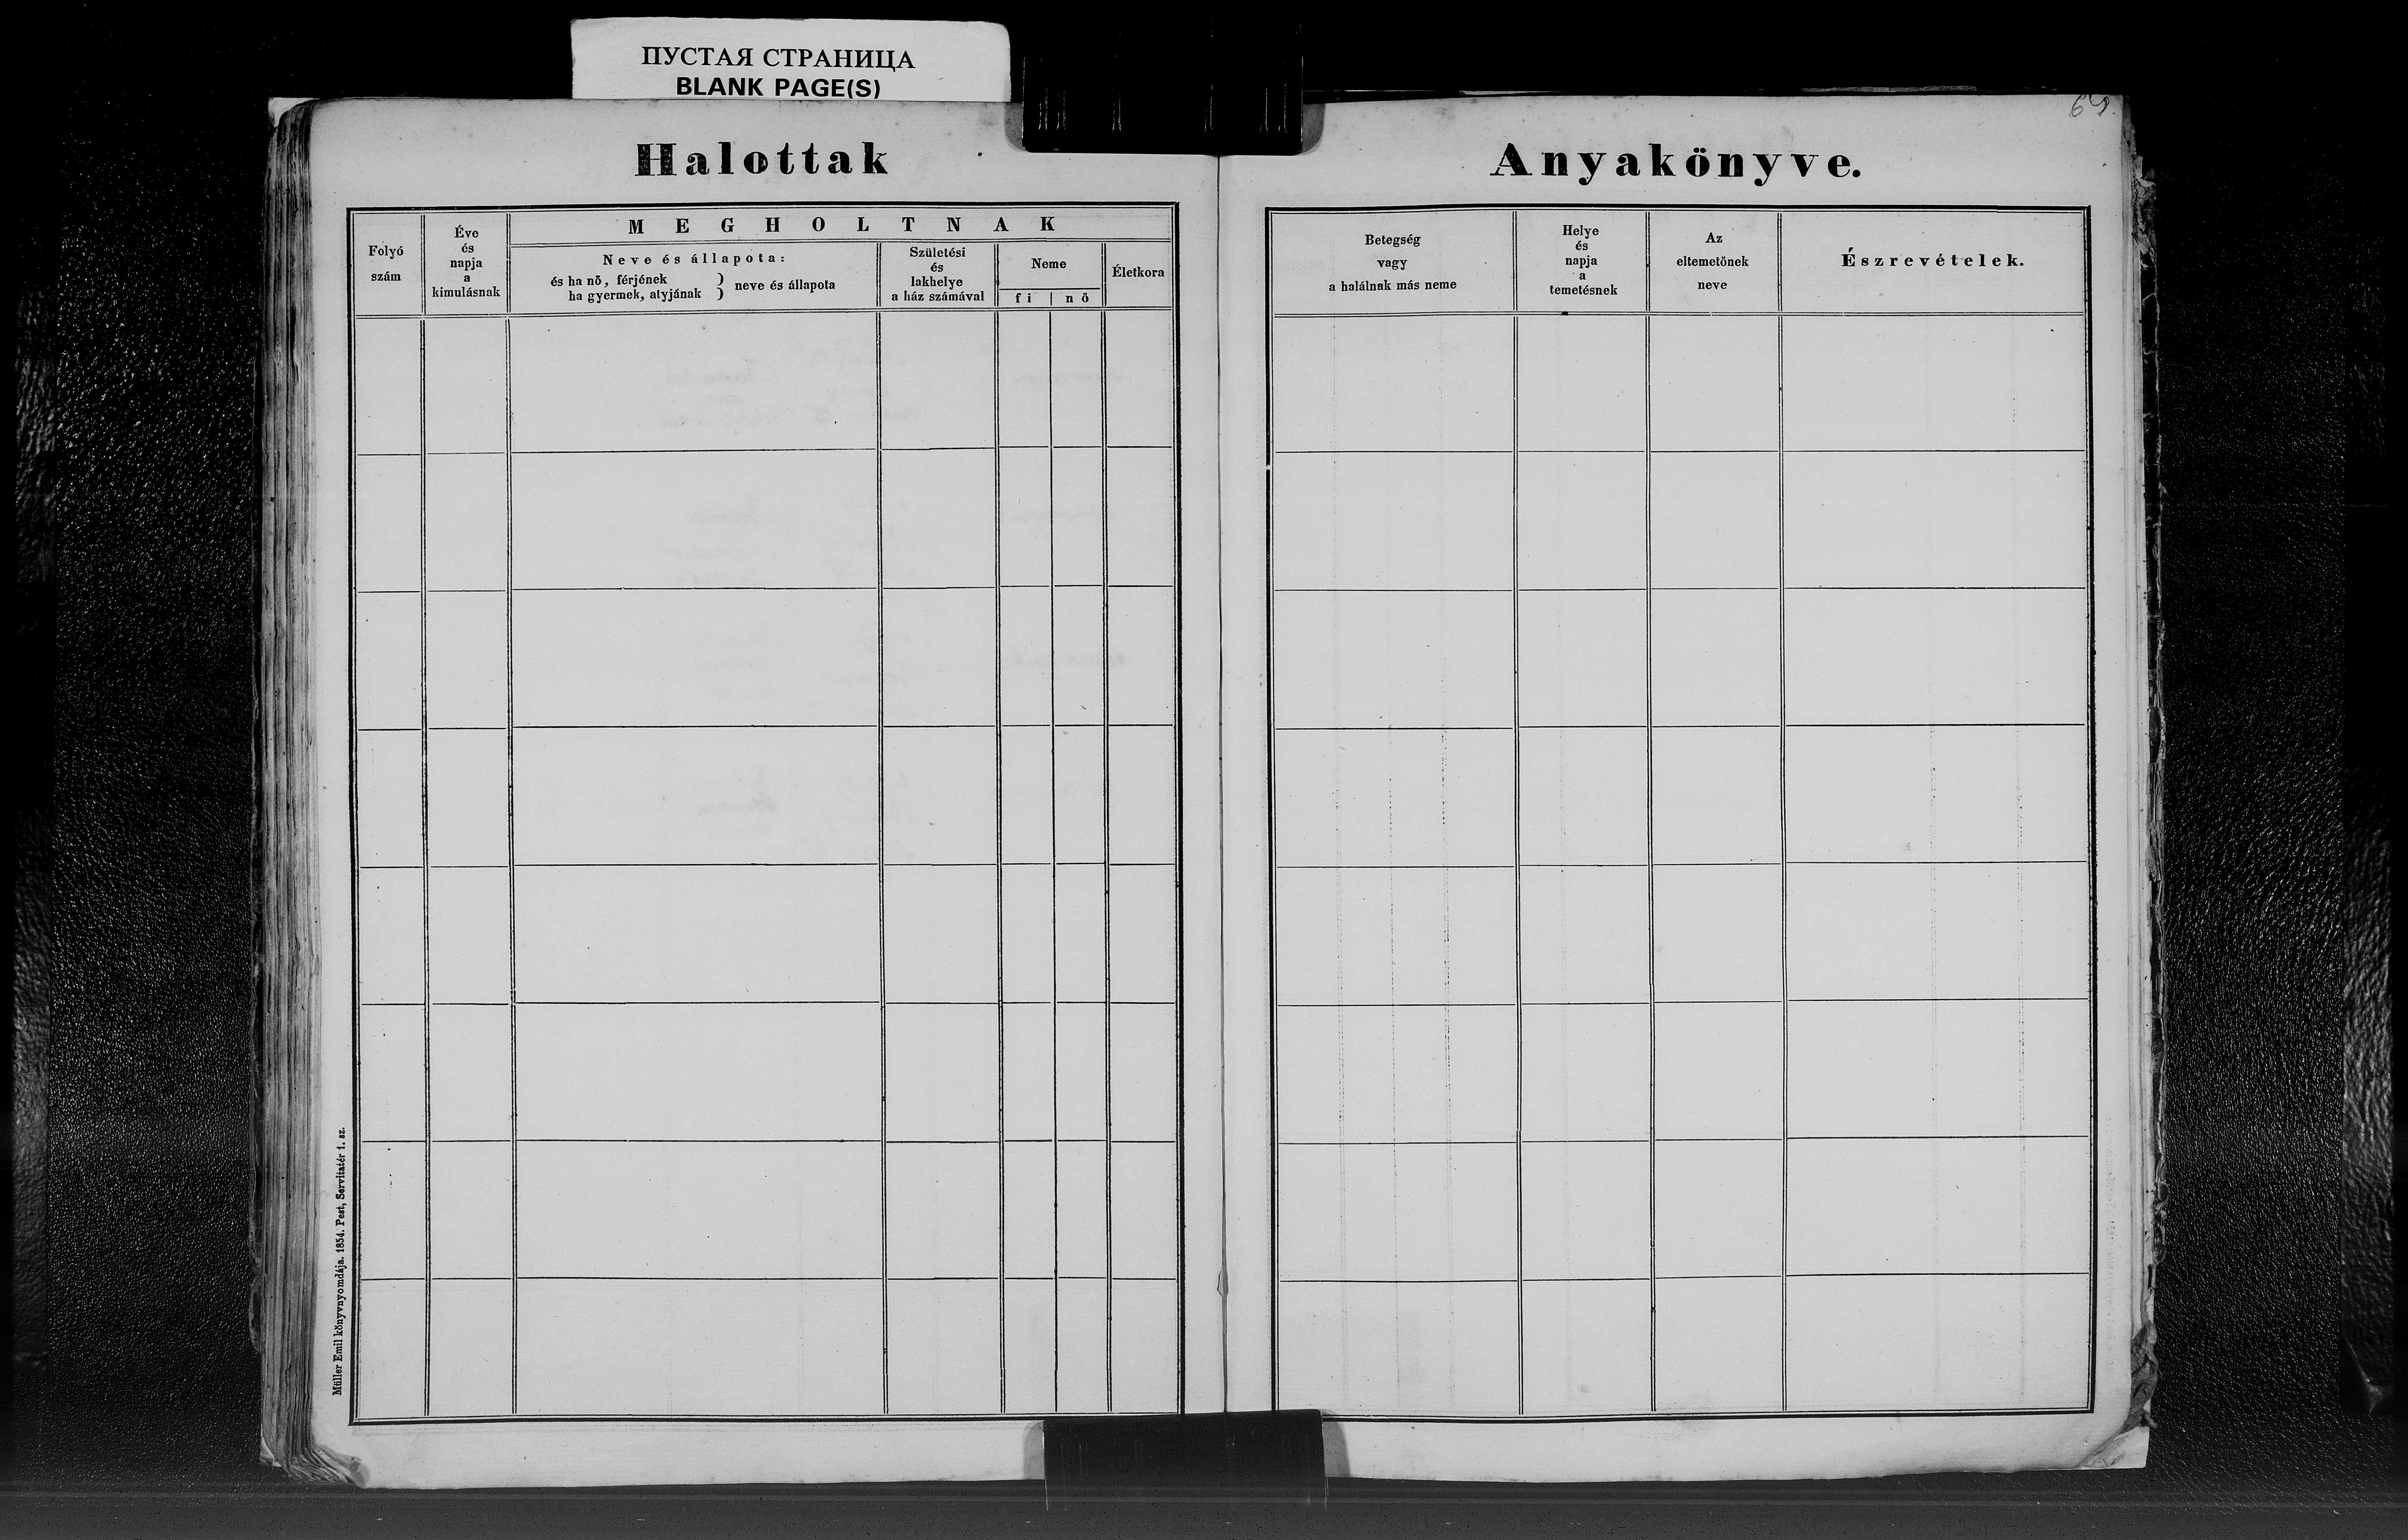 ПУСТАЯ СТРАНИЦА
BLANK PAGE(S)
Halottak
Folyó
szám
Éve
és
napja
a
kimulásnak
MEGHOLTNAK
Neve és állapota:
és ha nő, férjének
ha gyermek, atyjának } neve és állapota
Születési
és
lakhelye
a ház számával
Neme
fi | nő
Életkora
Müller Emil könyvnyomdája. 1854. Pest, Servitatér 1. sz.
Anyakönyve.
Betegség
vagy
a halálnak más neme
Helye
és
napja
a
temetésnek
Az
eltemetőnek
neve
Észrevételek.